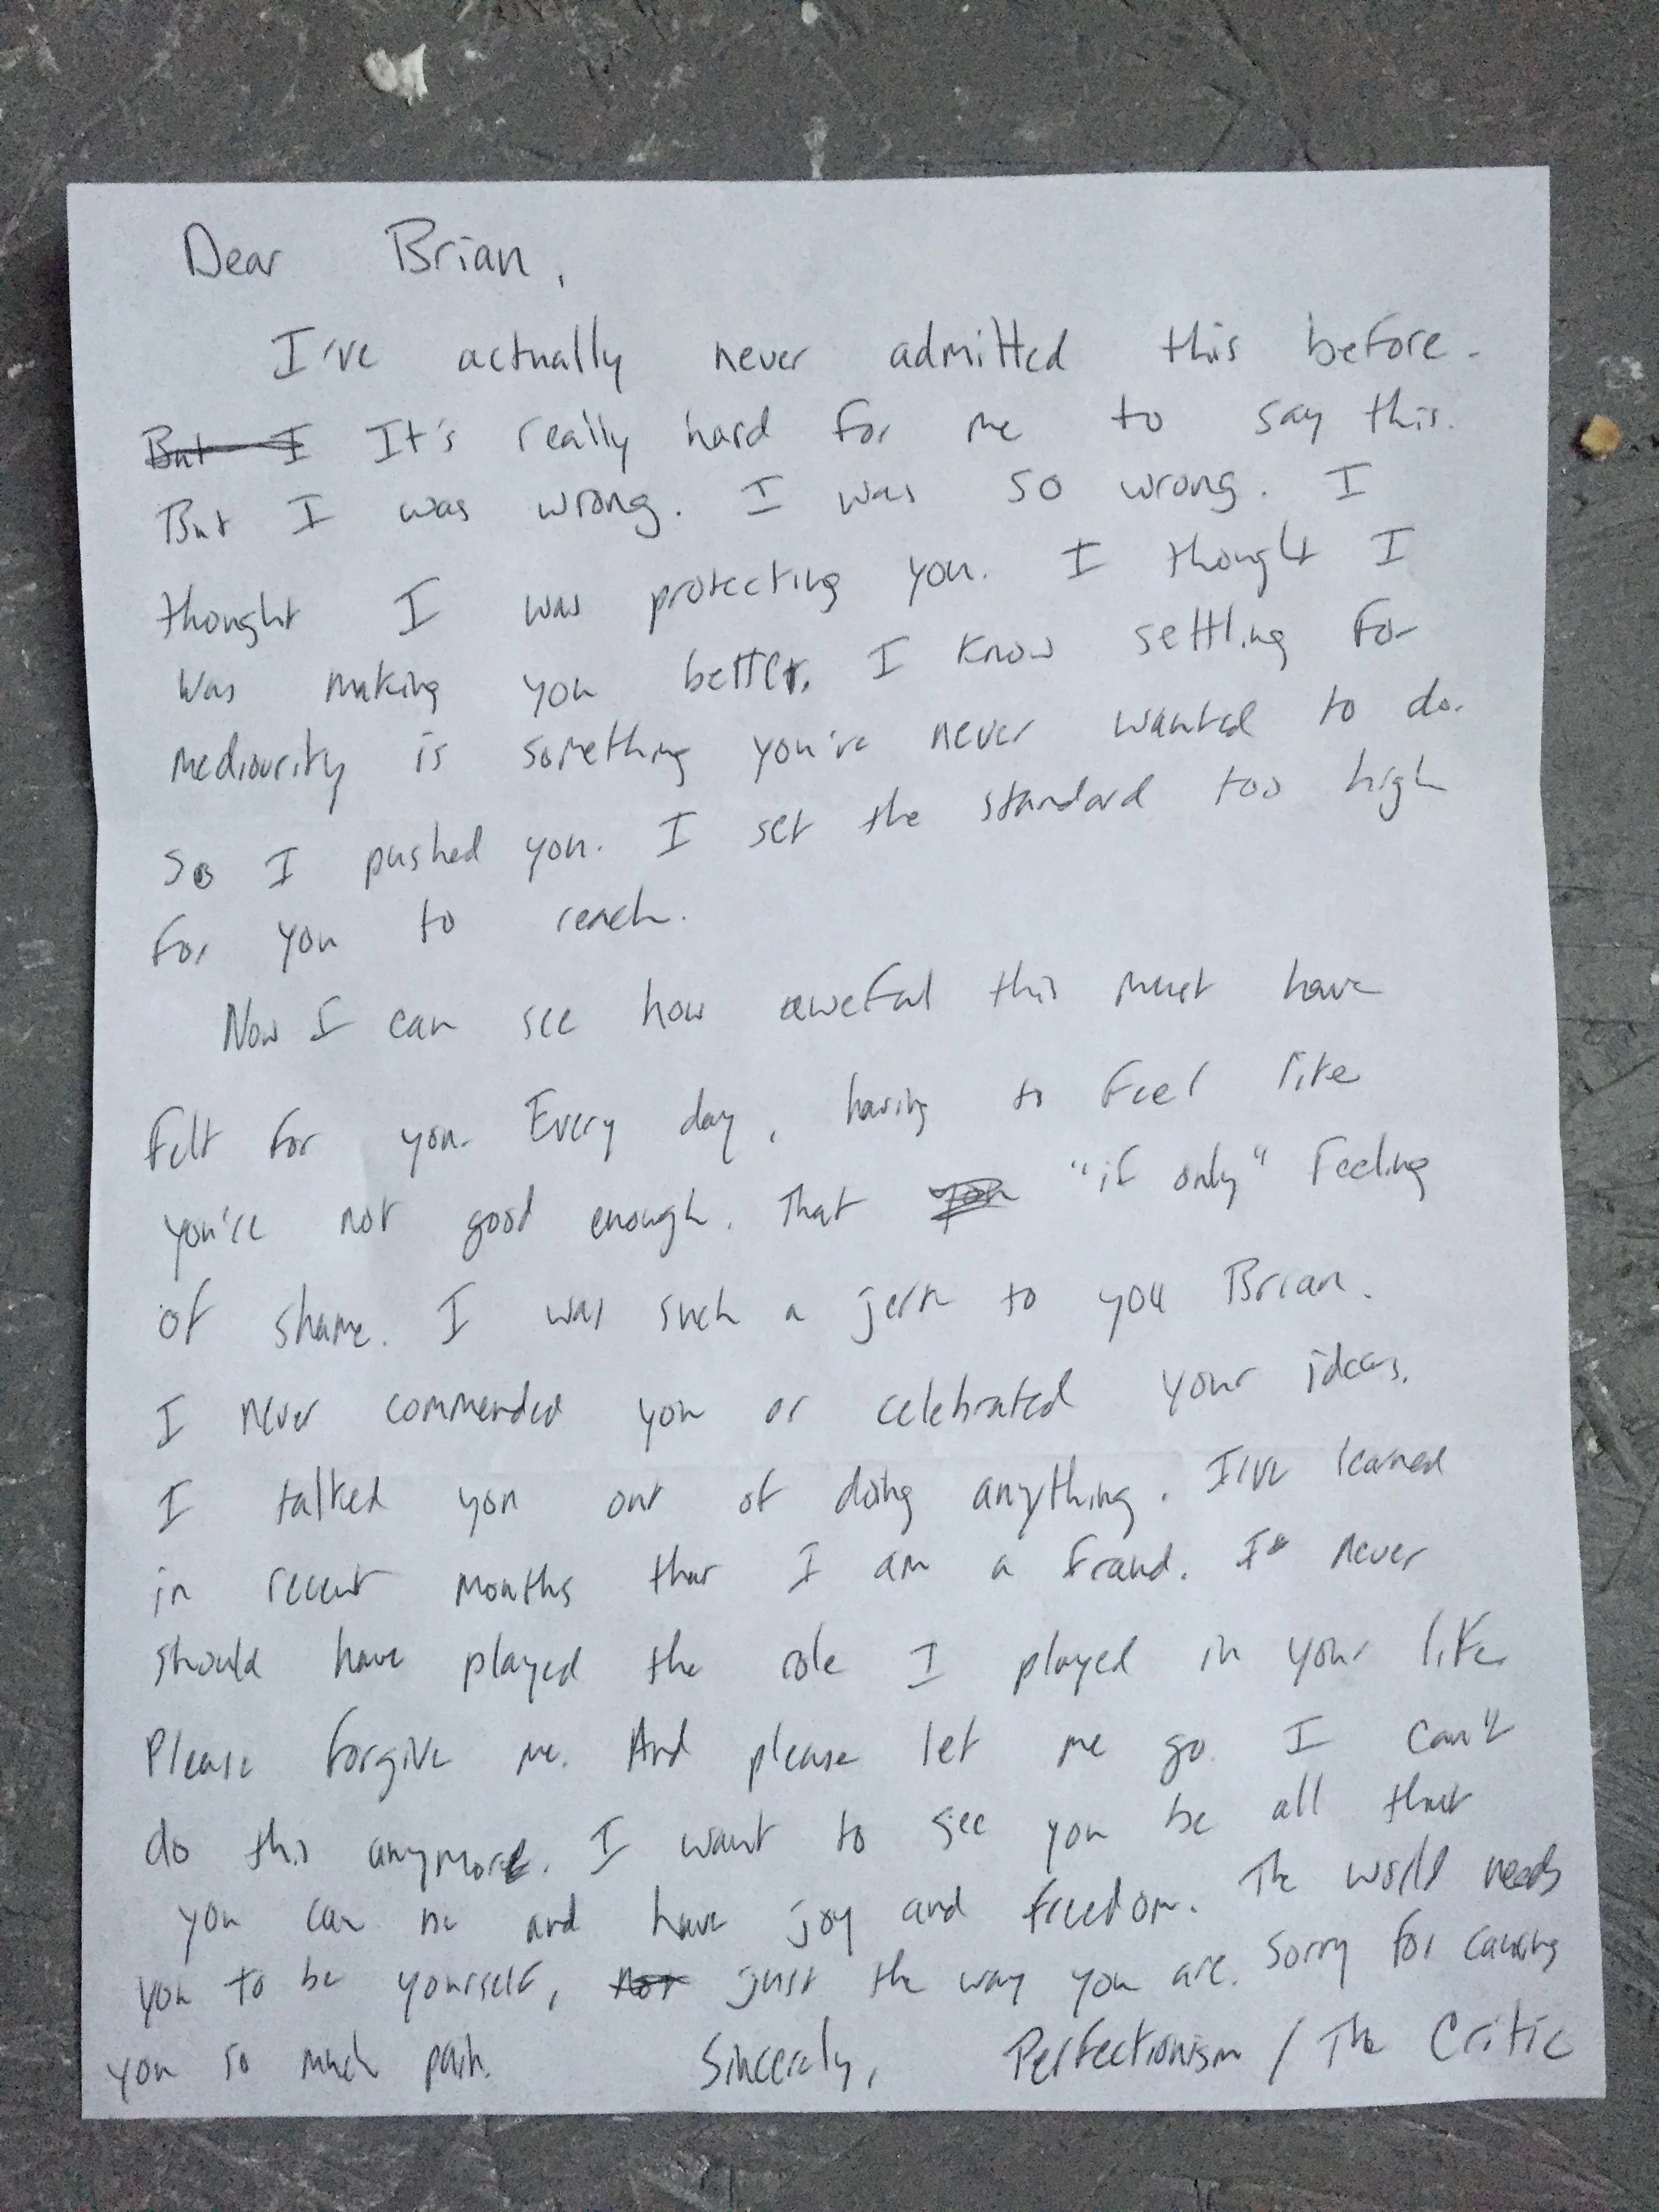 Dear Brian,
I've actually never admitted this before.
But I It's really hard for me to say this.
But I was wrong. I was so wrong. I
thought I was protecting you. I thought I
was making you better. I know settling for
mediourity is something you've never wanted to do.
So I pushed you. I set the standard too high
for you to reach.
Now I can see how aweful this must have
felt for you. Every day, having to feel like
you're not good enough. That you "if only" feeling
of shame. I was such a jerk to you Brian.
I never commended you or celebrated your ideas.
I talked you out of doing anything. I've learned
in recent months that I am a fraud. I never
should have played the role I played in your life.
Please forgive me. And please let me go. I can't
do this anymore. I want to see you be all that
you can be and have joy and freedom. The world needs
you to be yourself, not just the way you are. Sorry for causing
you so much pain. Sincerely, Perfectionism / The Critic